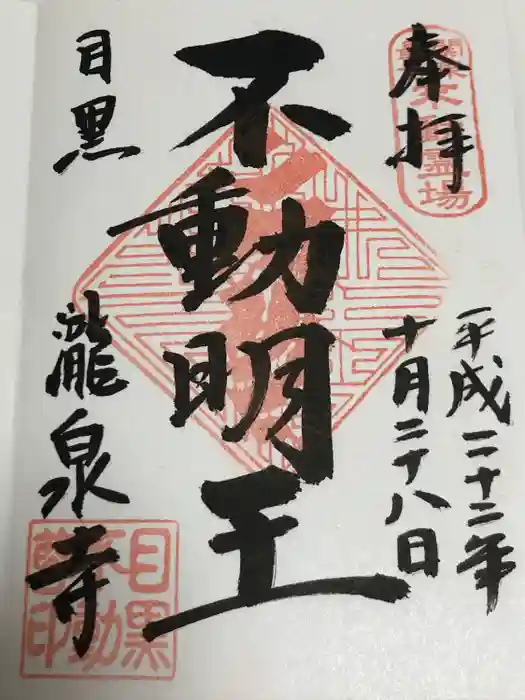 奉拝
平成二十二年
十月二十八日
不動明王
目黒
瀧泉寺
目黒
不動